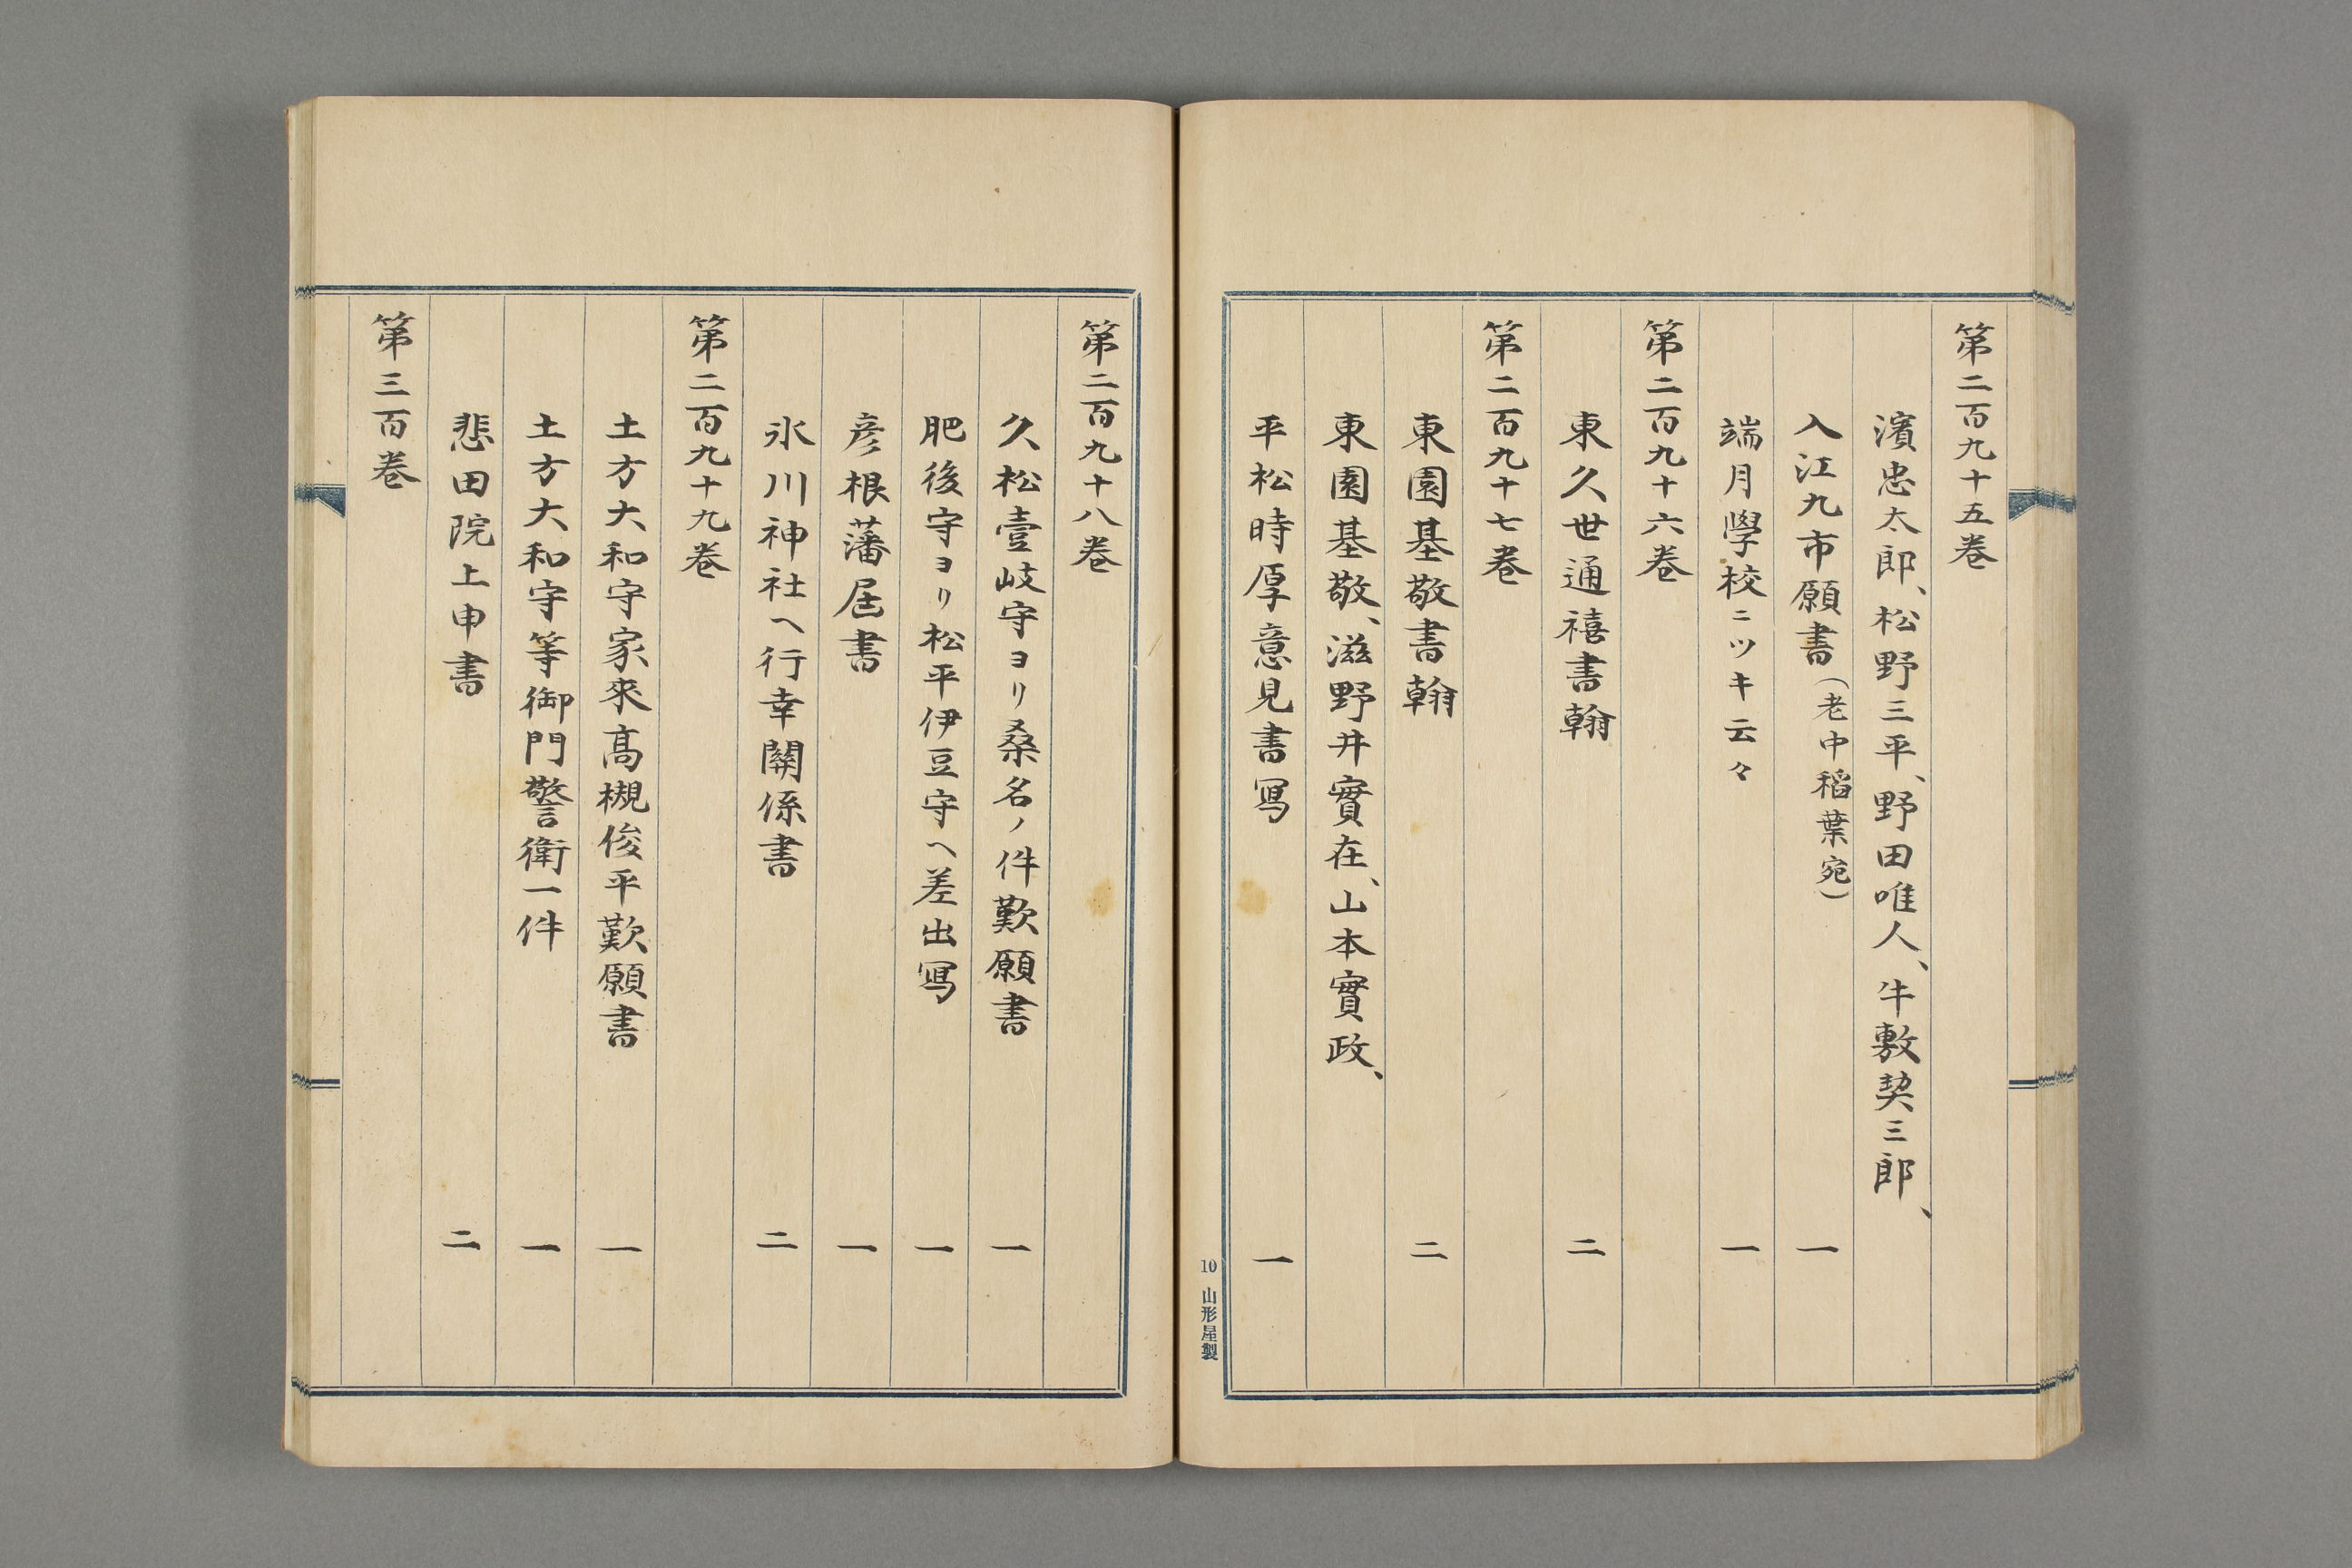 第二百九十五巻
濱忠太郎、松野三平、野田唯人、牛敷契三郎、
入江九市願書(老中稻葉宛) 一
端月學校ニツキ云々 一
第二百九十六巻
東久世通禧書翰 二
第二百九十七巻
東園基敬書翰 二
東園基敬、滋野井實在、山本實政、
平松時厚意見書写 一
10 山形屋製
第二百九十八巻
久松壹岐守ヨリ桑名ノ件歎願書 一
肥後守ヨリ松平伊豆守ヘ差出写 一
彦根藩届書 一
氷川神社ヘ行幸関係書 二
第二百九十九巻
土方大和守家來高槻俊平歎願書 一
土方大和守等御門警衛一件 一
悲田院上申書 二
第三百巻